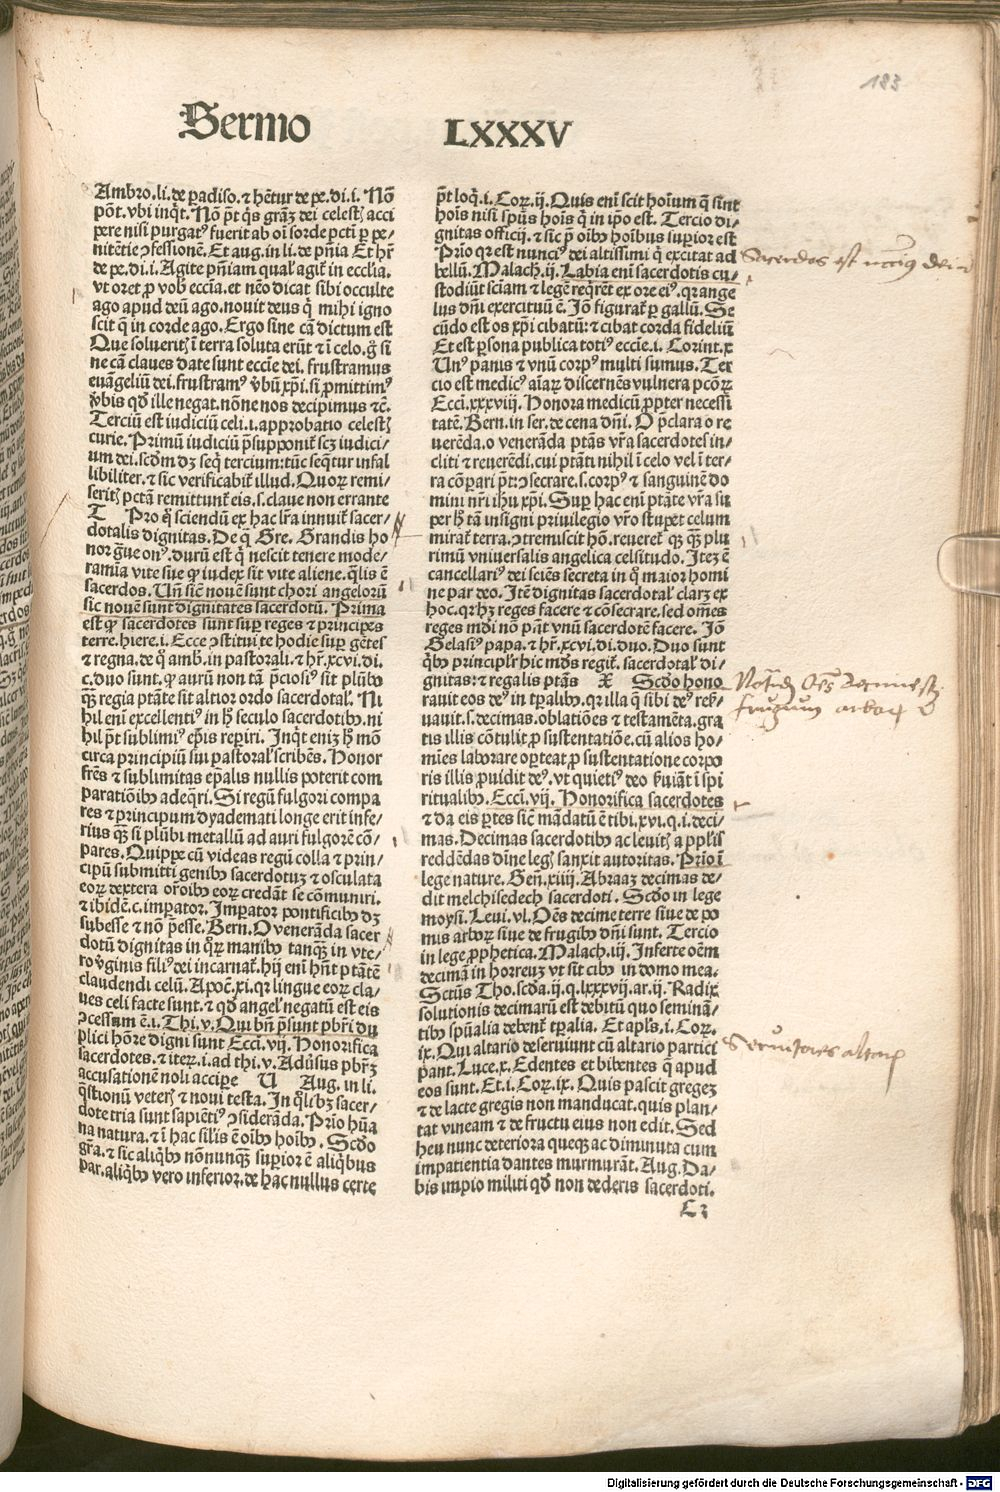 183
Sermo LXXXV
Ambro. li. de padiso. ⁊ hẽtur de pe. di. i. Nõ
põt. vbi inqt. Nõ pt qs grãz dei celestꝭ acci
pere nisi purgatꝰ fuerit ab oĩ sorde pctĩ ꝑ pe-
nitẽtie ↄfessionẽ. Et aug. in li. de pñia Et hr̃
de pe. di. i. Agite pñiam qualꝭ agit̃ in ecclia.
vt oret ꝓ vob eccĩa. et neõ dicat sibi occulte
ago apud deũ ago. nouit deus q̃ mihi igno
scit q̃ in corde ago. Ergo sine cã dictum est
Que solueritꝭ ĩ terra soluta erũt ⁊ ĩ celo. g̃ si
ne cã claues date sunt eccĩe dei. frustramus
euãgeliũ dei. frustramꝰ ṽbũ xp̃i. si ꝓmittimꝰ
ṽbis qđ ille negat. nõne nos decipimus ⁊c̃.
Terciũ est iudiciũ celi. i. approbatio celestꝭ
curie. Primũ iudiciũ p̃supponit̃ scꝫ iudici/
um dei. scđm dꝫ seq̃ tercium: tũc seq̃tur infal
libiliter. ⁊ sic verificabit̃ illud. Quoꝝ remi/
seritꝭ pctãa remittunt̃ eis. s. claue non errante
T Pro q̃ sciendũ ex hac lr̃a innuit̃ sacer/
dotalis dignitas. De q̃ Gre. Grandis ho
nor g̃ue onꝰ. durũ est q̃ nescit tenere mode/
ramia vite sue ꝙ iudex sit vite aliene. q̃lis ẽ
sacerdos. Uñ sic̃ nouẽ sunt chori angeloꝝ
sic nouẽ sunt dignitates sacerdotũ. Prima
est ꝙ sacerdotes sunt suꝑ reges ⁊ principes
terre. hiere. i. Ecce ↄstitui te hodie suꝑ gẽtes
⁊ regna. de q̃ amb. in pastorali. ⁊ hr̃. xcvi. di.
c. duo sunt. ꝙ aurũ non tã p̃ciosiꝰ sit plũbo
qꝫ regia ptãte sit altior ordo sacerdotalꝭ. Ni
hil eni excellentiꝰ in hꝭ seculo sacerdotibꝰ. ni
hil pt sublimiꝰ ep̃is reperiri. Inqt enĩz hꝭ mõ
circa principiũ sui pastoralꝭ scribẽs. Honor
frẽs ⁊ sublimitas ep̃alis nullis poterit com
paratiõibꝰ adeq̃ri. Si regũ fulgori compa
res ⁊ principum dyademati longe erit infe/
rius qꝫ si plũbi metallũ ad auri fulgorẽ cõ/
pares. Quippe cũ videas regũ colla ⁊ prin/
cipũ submitti genibꝰ sacerdotuꝫ ⁊ osculata
eoꝝ dextera or̃oibꝰ eoꝝ credãt se cõmuniri.
⁊ ibidẽ. c. impator. Impator pontificibꝰ dꝫ
subesse ⁊ nõ p̃esse. Bern. O venerãda sacer
dotũ dignitas in q̃ꝝ manibꝰ tanqꝫ in vte/
ro ṽginis filiꝰ dei incarnat̃. hij eni hñt ptãtẽ
claudendi celũ. Apoc̃. xi. qꝛ lingue eoꝝ cla/
ues celi facte sunt. ⁊ qđ angelꝭ negatũ est eis
ↄcessum ẽ. i. Thi. v. Qui bñ p̃sunt pbr̃i du
plici hõre digni sunt Ecci. vij. Honorifica
sacerdotes. ⁊ iteꝝ. i. ad thi. v. Adũsus pbr̃ꝫ
accusationẽ noli accipe U Aug. in li.
q̃stionũ veterꝭ ⁊ noui testa. In q̃libꝫ sacer/
dote tria sunt sapiẽtiꝰ ↄsiderãda. Prĩo hũa
na natura. ⁊ ĩ hac silis ẽ oĩbꝰ hoĩbꝰ. Scđo
gr̃a. ⁊ sic aliq̃bꝰ nõnunqꝫ superior ẽ aliq̃bus
par. aliq̃bꝰ vero inferior. de hac nullus certe
p̃t loq̃. i. Coꝝ. ij. Quis eni scit hoĩum q̃ sint
hoĩs nisi spũs hoĩs q̃ in ip̃o est. Tercio di/
gnitas officij. ⁊ sic p̃ oĩbꝰ hoĩbus superior est
Prĩo qꝛ est nunciꝰ dei altissimi q̃ excitat ad
bellũ. Malach. ij. Labia eni sacerdotis cu/
stodiũt sciam ⁊ legẽ req̃rẽt ex ore eiꝰ. qꝛ ange
lus dñi exercituũ ẽ. Jõ figurat̃ ꝑ gallũ. Se
cũdo est os xp̃i cibatũ: ⁊ cibat corda fideliũ
Et est ꝑsona publica totiꝰ eccĩe. i. Corint. x
Unꝰ panis ⁊ vnũ corpꝰ multi sumus. Ter
cio est medicꝰ aĩaꝝ discernẽs vulnera pcõꝝ
Ecci. xxxviij. Honora medicũ ꝓpter necessi
tatẽ. Bern. in ser. de cena dñi. O p̃clara o re
uerẽda. o venerãda ptãs vr̃a sacerdotes in/
cliti ⁊ reuerẽdi. cui ptãti nihil ĩ celo vel ĩ ter/
ra cõparari p̃t: ↄsecrare. s. corpꝰ ⁊ sanguinẽ do
mini nr̃i ihu xp̃i. Suꝑ hac eni ptãte vr̃a su
per hꝭ tã insigni priuilegio vr̃o stupet celum
mirat̃ terra. ↄtremiscit hõ. reueret̃ qꝫ qꝫ plu
rimũ vniuersalis angelica celsitudo. Iteꝫ ẽ
cancellariꝰ dei sciẽs secreta in q̃ maior homi
ne par deo. Itẽ dignitas sacerdotalꝭ claꝝ ex
hoc. qꝛ hꝫ reges facere ⁊ cõsecrare. sed om̃es
reges mũdi nõ pñt vnũ sacerdotẽ facere. Jõ
Gelasiꝰ papa. ⁊ hr̃. xcvi. di. duo. Duo sunt
q̃bꝰ principlꝭr hic mũdꝰ regit̃. sacerdotalꝭ di/
gnitas: ⁊ regalis ptãs X Scđo hono
rauit eos deꝰ in tꝑalibꝰ. qꝛ illa q̃ sibi deꝰ reẽ/
uauit. s. decimas. oblatiões ⁊ testamẽta. gra
tis illis cõtulit ꝓ sustentatiõe. cũ alios ho/
mĩes laborare oꝑteat ꝓ sustentatione corpo
ris illis ꝓuidit deꝰ. vt quietiꝰ deo ẽuiãt ĩ spi
ritualibꝰ. Ecci. vij. Honorifica sacerdotes
⁊ da eis ꝑtes sic̃ mãdatũ ẽ tibi. xvi. q. i. deci/
mas. Decimas sacerdotibꝰ ac leuitꝭ a pplĩs
reddẽdas dĩne legꝭ sanxit autoritas. Prĩo ĩ
lege nature. Geñ. xiiij. Abraaꝫ decimas de/
dit melchisedech sacerdoti. Scđo in lege
moysi. Leui. vl. Oẽs decime terre siue de po
mis arboꝝ siue de frugibꝰ dñi sunt. Tercio
in lege ꝓphetica. Malach. iij. Inferte oẽm
decimã in horreuꝫ vt sit cibꝰ in domo mea.
Sctũs Tho. scđa. ij. q. lxxxvij. ar. ij. Radix
solutionis decimarũ est debitũ quo seminã/
tibꝰ spũalia debent̃ tꝑalia. Et ap̃ls. i. Coꝝ.
ix. Qui altario deseruiunt cũ altario partici
pant. Luce. x. Edentes et bibentes q̃ apud
eos sunt. Et. i. Coꝝ. ix. Quis pascit gregeꝫ
⁊ de lacte gregis non manducat. quis plan/
tat vineam ⁊ de fructu eius non edit. Sed
heu nunc deteriora queqꝫ ac diminuta cum
impatientia dantes murmurãt. Aug. Da/
bis impio militi qđ non dederis sacerdoti.
Sacerdos est nũcius dei